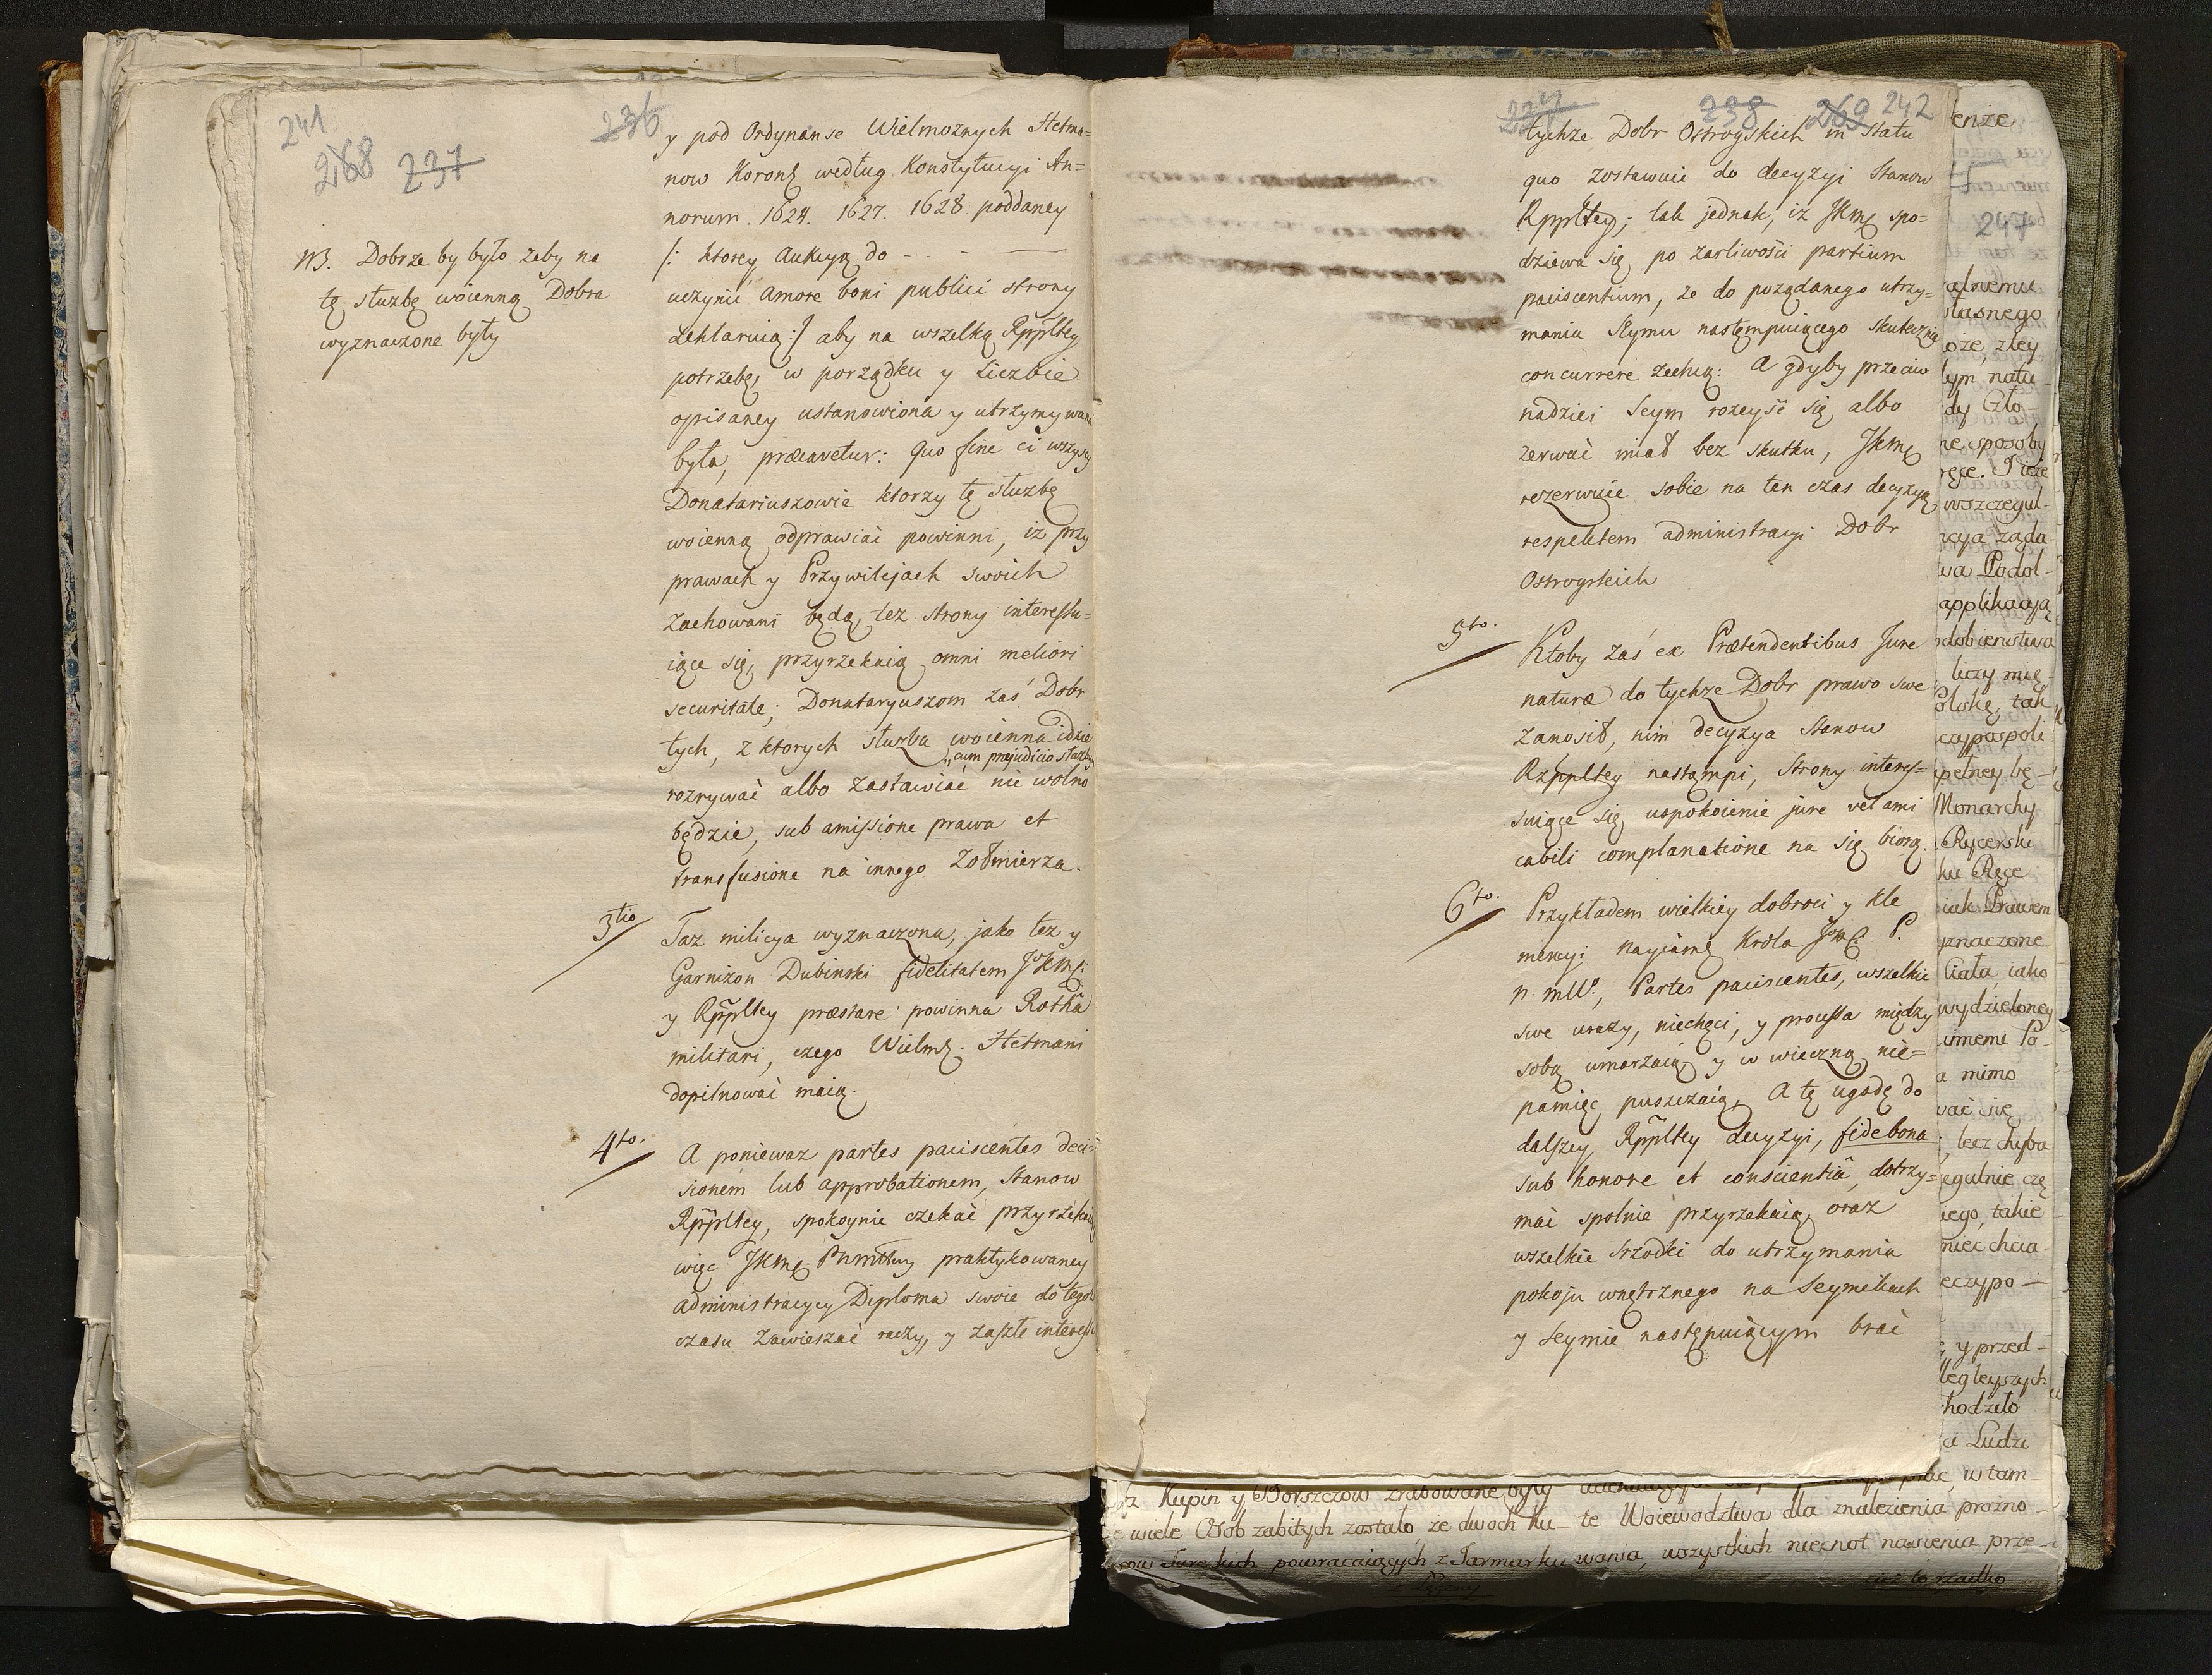 241
268 237
236
NB. Dobrze by było żeby na
tę służbę woienną Dobra
wyznaczone były
y pod Ordynanse Wielmożnych Hetma=
now Koronę według Konstytucyi An=
norum. 1624. 1627. 1628. poddaney
/: ktorey Aukcyą do - . - —
uczynić amore boni publici strony
deklaruią:/ aby na wszelką Rppltey
potrzebę, w porządku y Liczbie
opisaney ustanowiona y utrzymywana
była, præcavetur: Quo fine ci wszyscy
Donatariuszowie ktorzy tę służbę
woienną odprawiać powinni, iż przy
prawach y Przywilejach swoich
zachowani będą, też strony interessu=
iące się, przyrzekaią omni meliori
securitate; Donataryuszom zaś Dobr
tych, z ktorych służba woienna idzie
„cum præjudicio służby
rozrywać albo zastawiać nie wolno
będzie, sub amissione prawa et
transfusione na innego Żołnierza.
3tio
Taż milicya wyznaczona, jako też y
Garnizon Dubinski fidelitatem JKMę:
y Rppltey præstare powinna Rothâ
militari, czego Wielmę. Hetmani
dopilnować maią.
4to.
A ponieważ partes paciscentes deci=
sionem lub approbationem, Stanow
Rppltey, spokoynie czekać przyrzekaią
więc JKMę. praktykowaney
administracyey Diploma swoie do tego
czasu zawieszać raczy, y zaszłe interessa
227 238 269 242
tychże Dobr Ostrogskich in statu
quo zostawuie do decyzyi Stanow
Rppltey; tak jednak, iż JKMę spo=
dziewa się po żarliwości partium
paciscentium, że do pożądanego utrzy=
mania Seymu następuiącego skutecznie
concurrere zechcą: A gdyby przeciw
nadziei Seym rozeyść się, albo
zerwać miał bez skutku, JKMę
rezerwuie sobie na ten czas decyzyą
respektem administracyi Dobr
Ostrogskich
5to.
Ktoby zaś ex Prætendentibus Jure
naturæ do tychże Dobr prawo swe
zanosił, nim decyzya Stanow
Rzppltey nastąmpi, Strony interes=
suiące się uspokoienie jure vel ami
cabili complanatione na się biorą.
6to.
Przykładem wielkiey dobroci y Kle
mencyi Nayiaśnę Krola Jmę. P.
n. mllo., Partes paciscentes, wszelkie
swe urazy, niechęci, y processa między
sobą umarzaią y w wieczną nie=
pamięć puszczaią, A tę ugodę do
dalszey, Rppltey decyzyi, fide bona
sub honore et conscientiâ, dotrzy=
mać spolnie przyrzekaią, oraz
wszelkie srzodki do utrzymania
pokoju wnętrznego na Seymikach
y Seymie następuiącym brać
247
Kupin y Borszczow zrabowane były
wiele Osob zabitych zostało, że dwoch Ku- te Woiewodztwa dla znalezienia prożno-
Tureckich powracaiących z Jarmarku wania, wszystkich niecnot nasienia prze-
to rzadko